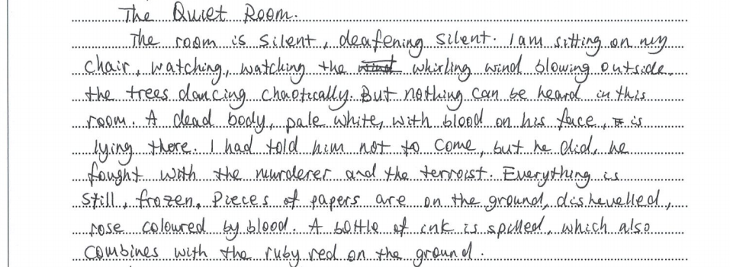 The Quiet Room.
The room is silent, deafening silent. I am sitting on my
chair, watching, watching the whirling wind blowing outside,
the trees dancing chaotically. But nothing can be heard in this
room. A dead body, pale white, with blood on his face, is
lying there. I had told him not to come, but he did, he
fought with the murderer and the terroist. Everything is
still, frozen, Pieces of papers are on the ground, dishevelled,
rose coloured by blood. A bottle of ink is spilled, which also
combines with the ruby red on the ground.